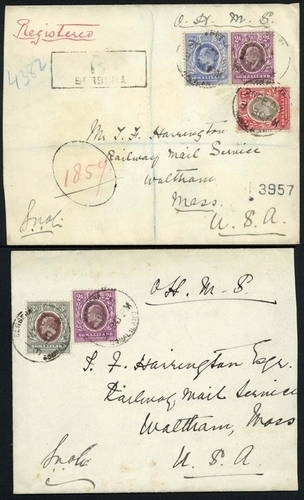 Registered
O. H. M. S.
4382
BERBERA
SOMALILAND
SOMALILAND
Mr. T. F. Harrington
Railway Mail Service
Waltham
Mass.
U. S. A.
1859
3957
O. H. M. S
SOMALILAND
SOMALILAND
T. F. Harrington Esqr.
Railway Mail Service
Waltham, Mass
U. S. A.